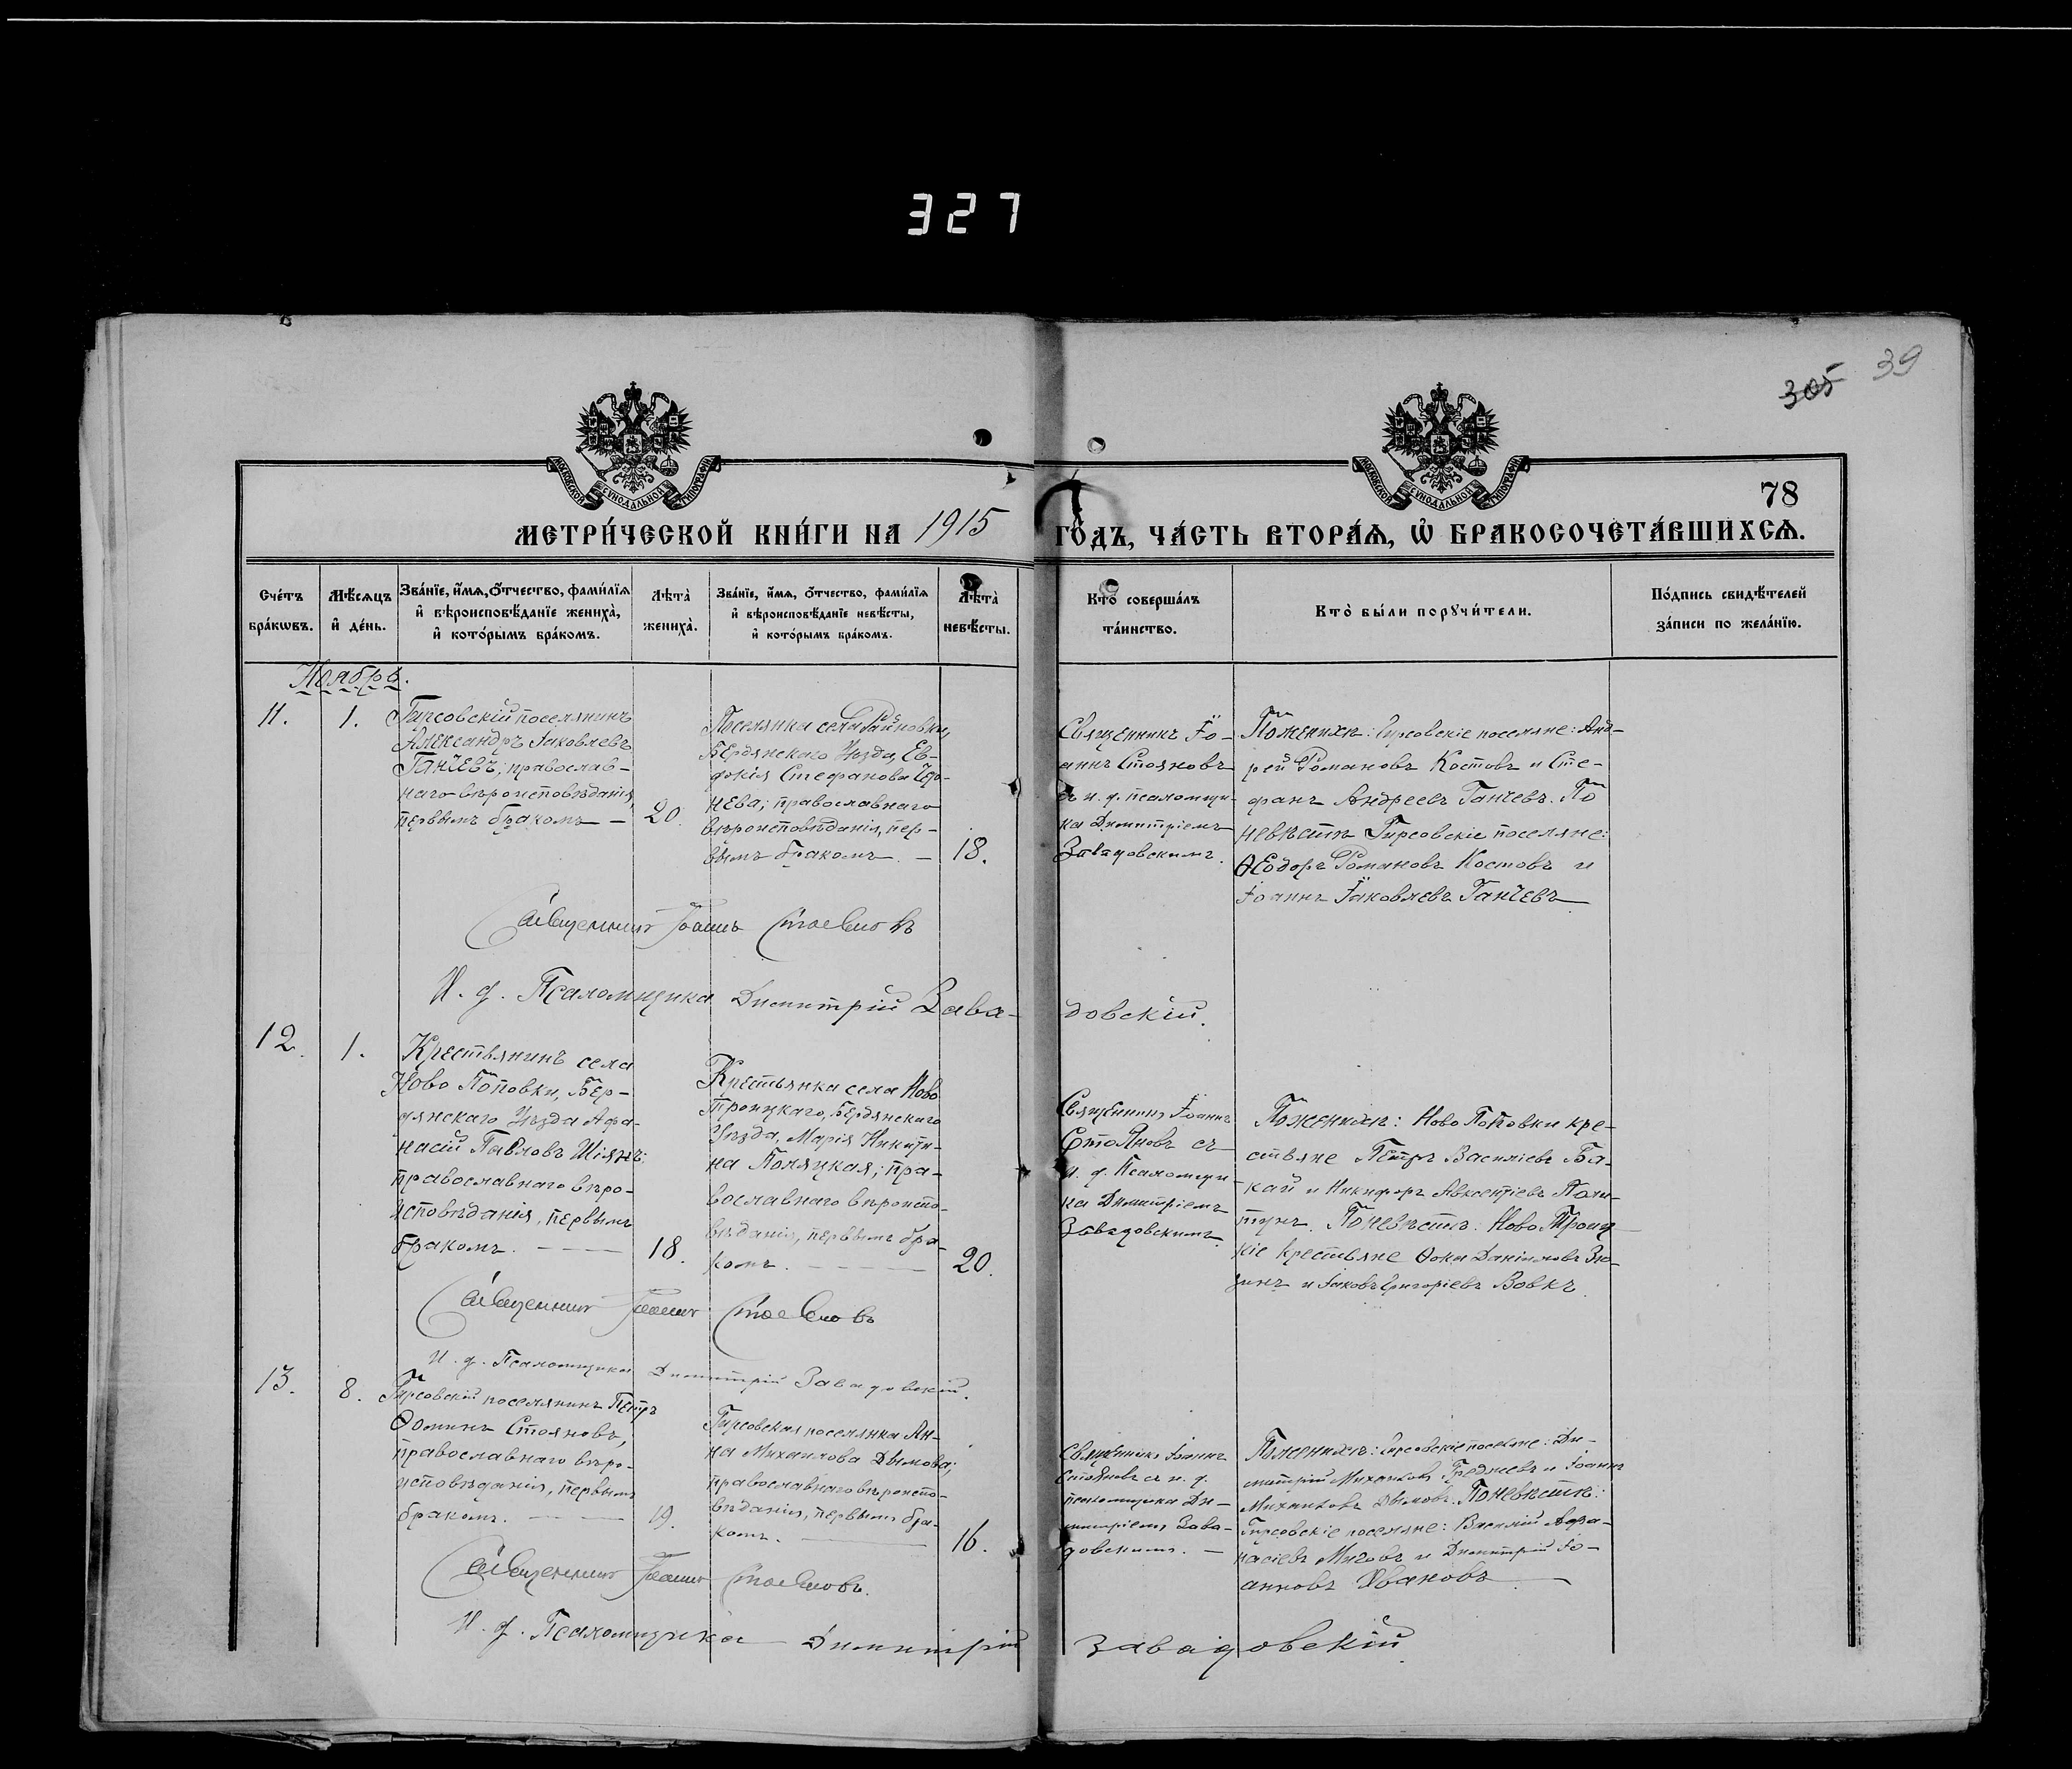 327
305 39
78
МОСКОВСКОЙ СѴНОДАЛЬНОЙ ТИПОГРАФІИ
МОСКОВСКОЙ СѴНОДАЛЬНОЙ ТИПОГРАФІИ
МЕТРИ́ЧЕСКОЙ КНИ́ГИ НА 1915 ГО́ДЪ, ЧА́СТЬ ВТОРА́Ѧ, Ѡ҆ БРАКОСОЧЕТА́ВШИХСѦ.
Сче́тъ
бра́кѡвъ.
Мѣ́сяцъ
и҆ де́нь.
Зва́нїе, и҆́мѧ, ѻ҆́тчество, фами́лїѧ
и҆ вѣроисповѣ́данїе жениха̀,
и҆ кото́рымъ бра́комъ.
Лѣ́та̀
жениха̀.
Зва́нїе, и҆́мѧ, ѻ҆́тчество, фами́лїѧ
и҆ вѣроисповѣ́данїе невѣ́сты,
и҆ кото́рымъ бра́комъ.
Лѣ́та̀
невѣ́сты.
Кто̀ соверша́лъ
та́инство.
Кто̀ бы́ли порꙋчи́тели.
По́дпись свидѣ́телей
за́писи по жела́нїю.
Ноябрь.
11.
1.
Гирсовскій поселянинъ
Александръ Іаковлевъ
Ганчевъ; православ-
наго вѣроисповѣданія,
первымъ бракомъ —
20.
Поселянка села Райновки,
Бердянскаго Уѣзда, Ев-
докія Стефанова
нева; православнаго
вѣроисповѣданія, пер-
вымъ бракомъ. —
18.
Священникъ Іо-
аннъ Стояновъ
съ и. д. псаломщи-
ка Димитріемъ
Завадовскимъ.
По женихѣ: Гирсовскіе поселяне: Анд-
рей Романовъ Костовъ и Сте-
фанъ Андреевъ Ганчевъ. По
невѣстѣ Гирсовскіе поселяне:
Ѳеодоръ Романовъ Костовъ и
Іоаннъ Іаковлевъ Ганчевъ
Священникъ Іоаннъ Стояновъ
И. д. Псаломщика Димитрій Зава-довскій.
12.
1.
Крестьянинъ села
Ново Поповки, Бер-
дянскаго Уѣзда Афа-
насій Павловъ Шіянъ;
православнаго вѣро-
исповѣданія, первымъ
бракомъ. ———
18.
Крестьянка села Ново
Троицкаго, Бердянскаго
Уѣзда, Марія Никити-
на Поляцкая; пра-
вославнаго вѣроиспо-
вѣданія, первымъ бра-
комъ. ————
20.
Священникъ Іоаннъ
Стояновъ съ
и. д. Псаломщи-
ка Димитріемъ
Завадовскимъ.
По женихѣ: Ново Поповки кре-
стьяне Петръ Василіевъ Ба-
кай и Никифоръ Авксентіевъ Поли-
щукъ. По невѣстѣ: Ново Троиц-
кіе крестьяне Ѳока Даніиловъ Зю-
зинъ и Іаковъ Григоріевъ Вовкъ.
Священникъ Іоаннъ Стояновъ
И. д. Псаломщика Димитрій Завадовскій.
13.
8.
Гирсовскій поселянинъ Петръ
Ѳоминъ Стояновъ,
православнаго вѣро-
исповѣданія, первымъ
бракомъ. ———
19.
Гирсовская поселянка Ан-
на Михаилова Дымова;
православнаго вѣроиспо-
вѣданія, первымъ бра-
комъ. ————
16.
Священникъ Іоаннъ
Стояновъ съ и. д.
псаломщика Ди-
митріемъ Зава-
довскимъ. —
По женихѣ: Гирсовскіе поселяне: Ди-
митрій Михаиловъ и Іоаннъ
Михаиловъ Дымовъ. По невѣстѣ:
Гирсовскіе поселяне: Василій Афа-
насіевъ Миговъ и Димитрій Іо-
анновъ Ивановъ
Священникъ Іоаннъ Стояновъ.
И. д. Псаломщика Димитрій Завадовскій.